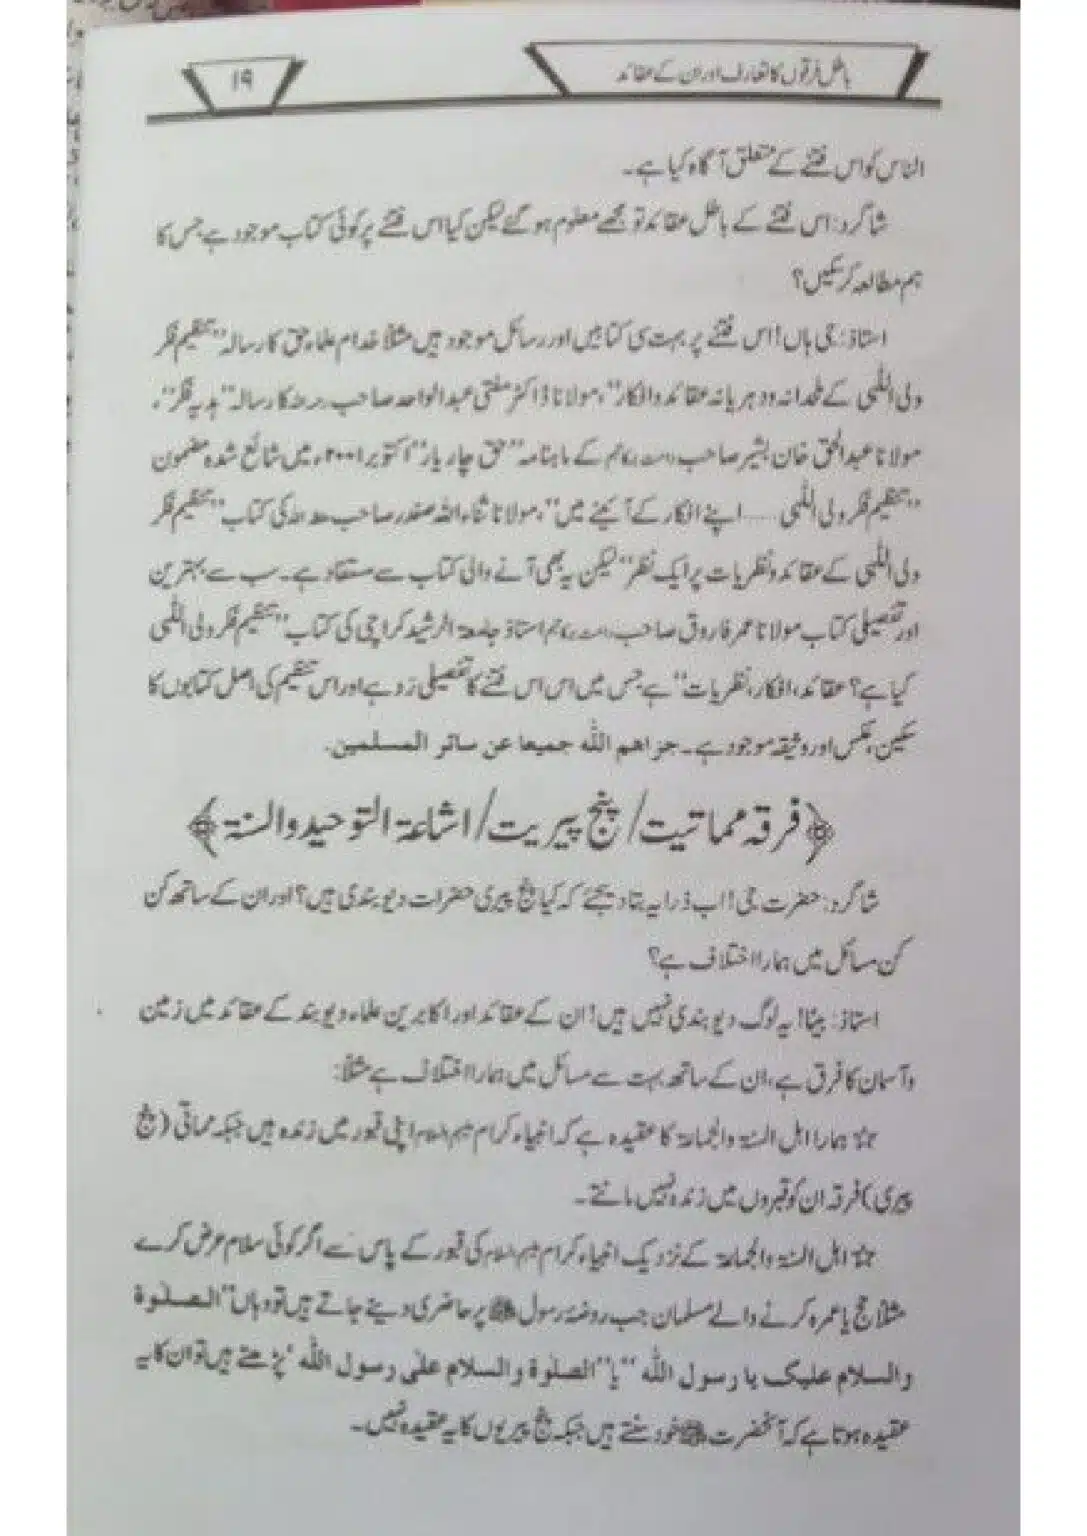 باطل فرقوں کا تعارف اور ان کے عقائد
۱۹
الناس کو اس فتنے کے متعلق آگاہ کیا ہے۔
شاگرد: اس فتنے کے باطل عقائد تو مجھے معلوم ہو گئے لیکن کیا اس فتنے پر کوئی کتاب موجود ہے جس کا
ہم مطالعہ کر سکیں؟
استاذ: جی ہاں! اس فتنے پر بہت سی کتابیں اور رسائل موجود ہیں مثلاً خدام علماء حق کا رسالہ ”تنظیم فکر
ولی اللّٰہی کے ملحدانہ و دہریانہ عقائد و افکار“، مولانا ڈاکٹر مفتی عبدالواحد صاحب کا رسالہ ”ہدیہ فکر“،
مولانا عبدالحق خان بشیر صاحب کے ماہنامہ ”حق چار یار“ اکتوبر ۲۰۰۱ء میں شائع شدہ مضمون
”تنظیم فکر ولی اللّٰہی ...... اپنے افکار کے آئینے میں“، مولانا ثناء اللہ صفدر صاحب کی کتاب ”تنظیم فکر
ولی اللّٰہی کے عقائد و نظریات پر ایک نظر“ لیکن یہ بھی آنے والی کتاب سے مستفاد ہے۔ سب سے بہترین
اور تفصیلی کتاب مولانا عمر فاروق صاحب استاذ جامعۃ الرشید کراچی کی کتاب ”تنظیم فکر ولی اللّٰہی
کیا ہے؟ عقائد، افکار، نظریات“ ہے جس میں اس اس فتنے کا تفصیلی رد ہے اور اس تنظیم کی اصل کتابوں کا
عکس اور وثیقہ موجود ہے۔ جزاهم الله جميعا عن سائر المسلمين.
﴿فرقہ مماتیت/ پنج پیریت/ اشاعۃ التوحید والسنۃ﴾
شاگرد: حضرت جی! اب ذرا یہ بتا دیجئے کہ کیا پنج پیری حضرات دیوبندی ہیں؟ اور ان کے ساتھ کن
کن مسائل میں ہمارا اختلاف ہے؟
استاذ: بیٹا! یہ لوگ دیوبندی نہیں ہیں! ان کے عقائد اور اکابرین علماء دیوبند کے عقائد میں زمین
و آسمان کا فرق ہے، ان کے ساتھ بہت سے مسائل میں ہمارا اختلاف ہے مثلاً:
☆ ہمارا اہل السنۃ والجماعۃ کا عقیدہ ہے کہ انبیاء کرام علیہم السلام اپنی قبور میں زندہ ہیں جبکہ مماتی (پنج
پیری) فرقہ ان کو قبروں میں زندہ نہیں مانتے۔
☆ اہل السنۃ والجماعۃ کے نزدیک انبیاء کرام علیہم السلام کی قبور کے پاس سے اگر کوئی سلام عرض کرے
مثلاً حج یا عمرہ کرنے والے مسلمان جب روضۂ رسول ﷺ پر حاضری دینے جاتے ہیں تو وہاں ”الصلوة
والسلام عليك يا رسول الله“ یا ”الصلوة والسلام على رسول الله“ پڑھتے ہیں تو ان کا یہ
عقیدہ ہوتا ہے کہ آنحضرت ﷺ خود سنتے ہیں جبکہ پنج پیریوں کا یہ عقیدہ نہیں۔